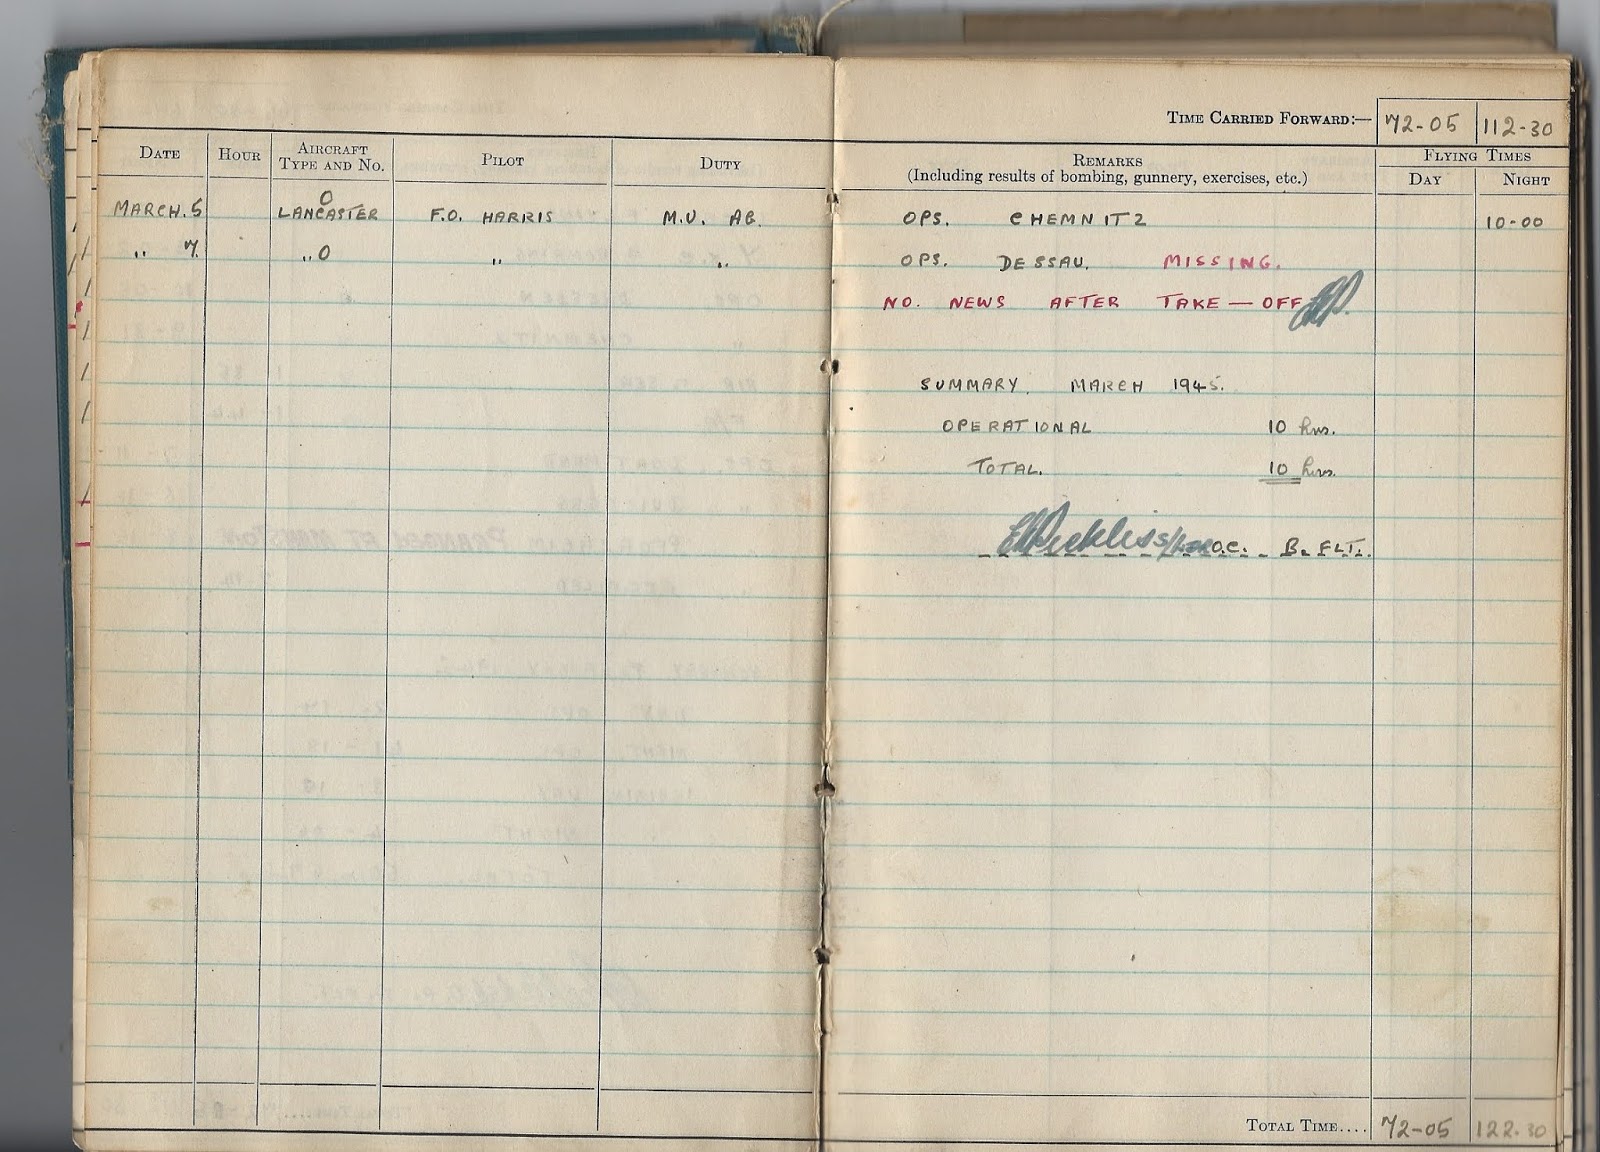 TIME CARRIED FORWARD:— 72-05 112-30
DATE HOUR AIRCRAFT TYPE AND NO. PILOT DUTY REMARKS (Including results of bombing, gunnery, exercises, etc.) FLYING TIMES
DAY NIGHT
O
MARCH. 5 LANCASTER F.O. HARRIS M.U. AB. OPS. CHEMNITZ 10-00
" 7. " O " " OPS. DESSAU. MISSING.
NO. NEWS AFTER TAKE — OFF
SUMMARY. MARCH 1945.
OPERATIONAL 10 hrs.
TOTAL. 10 hrs.
O.C. B. FLT.
TOTAL TIME.... 72-05 122-30